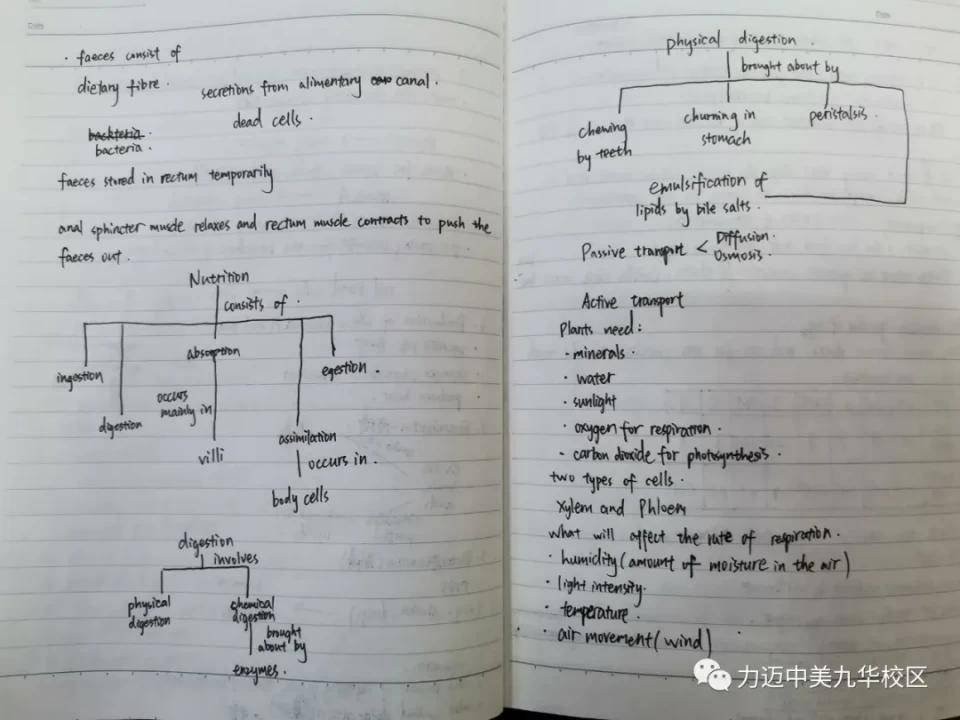 Date
· faeces consist of
dietary fibre.
secretions from alimentary canal.
dead cells.
backteria.
bacteria.
faeces stored in rectum temporarily
anal sphincter muscle relaxes and rectum muscle contracts to push the
faeces out.
Nutrition
consists of.
ingestion
digestion
absorption
occurs
mainly in
villi
assimilation
occurs in.
body cells
egestion.
digestion
involves
physical
digestion
chemical
digestion
brought
about by
enzymes.
Date
physical digestion.
brought about by
chewing
by teeth
churning in
stomach
peristalsis.
emulsification of
lipids by bile salts.
Passive transport < Diffusion.
Osmosis.
Active transport
Plants need:
· minerals.
· water
· sunlight
· oxygen for respiration.
- carbon dioxide for photosynthesis.
two types of cells.
Xylem and Phloem
what will affect the rate of respiration.
· humidity (amount of moisture in the air)
· light intensity.
· temperature.
· air movement (wind)
力迈中美九华校区